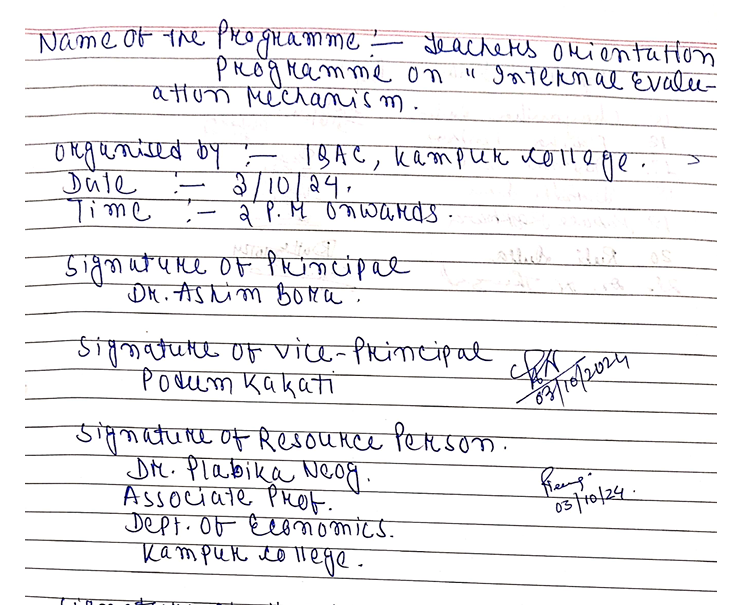 Name of the Programme :– Teachers Orientation
Programme on " Internal Evalu-
ation Mechanism.
Organised by :– IQAC, Kampur College.
Date :– 3/10/24.
Time :– 2 P.M Onwards.
Signature of Principal
Dr. Ashim Bora.
Signature of Vice-Principal
Podum Kakati
03/10/2024
Signature of Resource Person.
Dr. Plabika Neog.
Associate Prof.
03/10/24.
Dept. of Economics.
Kampur College.